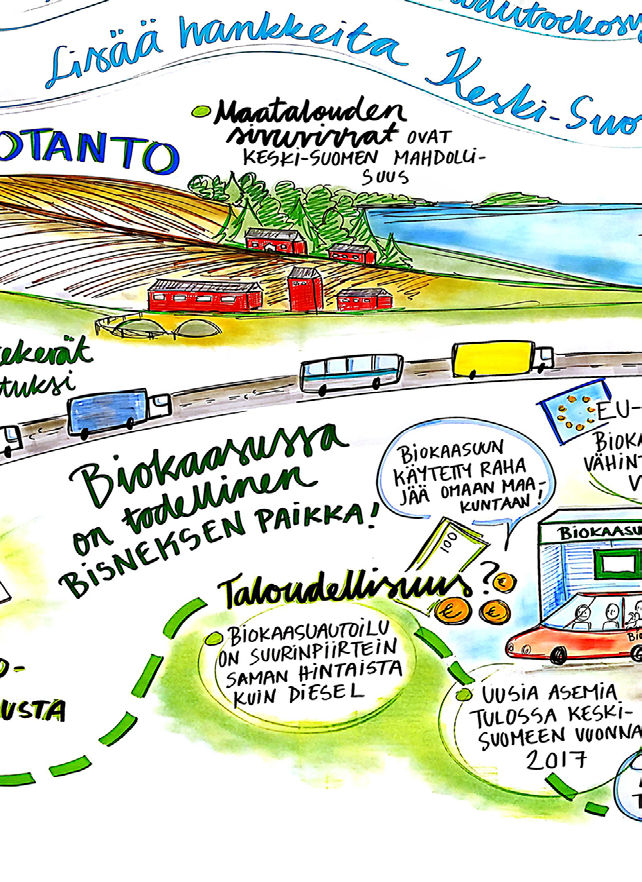 Lisää hankkeita Keski-Suo
OTANTO
Maatalouden
sivuvirrat OVAT
KESKI-SUOMEN MAHDOLLI-
SUUS
ekevät
tuksi
Biokaasussa
on todellinen
BISNEKSEN PAIKKA!
BIOKAASUUN
KÄYTETTY RAHA
JÄÄ OMAAN MAA-
KUNTAAN!
EU-
BIOKA
VÄHIN
V
BIOKAASU
100
Taloudellisuus?
BIOKAASUAUTOILU
ON SUURINPIIRTEIN
SAMAN HINTAISTA
KUIN DIESEL
O-
USTA
UUSIA ASEMIA
TULOSSA KESKI-
SUOMEEN VUONNA
2017